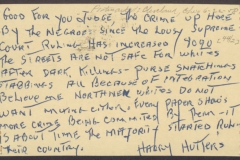 GOOD FOR YOU JUDGE, THE CRIME UP HERE
BY THE NEGROES SINCE THE LOUSY SUPREME
COURT RULING HAS INCREASED 70 90
THE STREETS ARE NOT SAFE FOR WHITES
AFTER DARK, KILLINGS - PURSE SNATCHINGS
STABBINGS ALL BECAUSE OF INTEGRATION
BELIEVE ME NORTHERN WHITES DO NOT
WANT MIXING EITHER. EVERY PAPER SHOWS
MORE CRIMES BEING COMMITTED BY THEM - IT
IS ABOUT TIME THE MAJORITY STARTED RULING
THEIR COUNTRY. HARRY HUTTERS